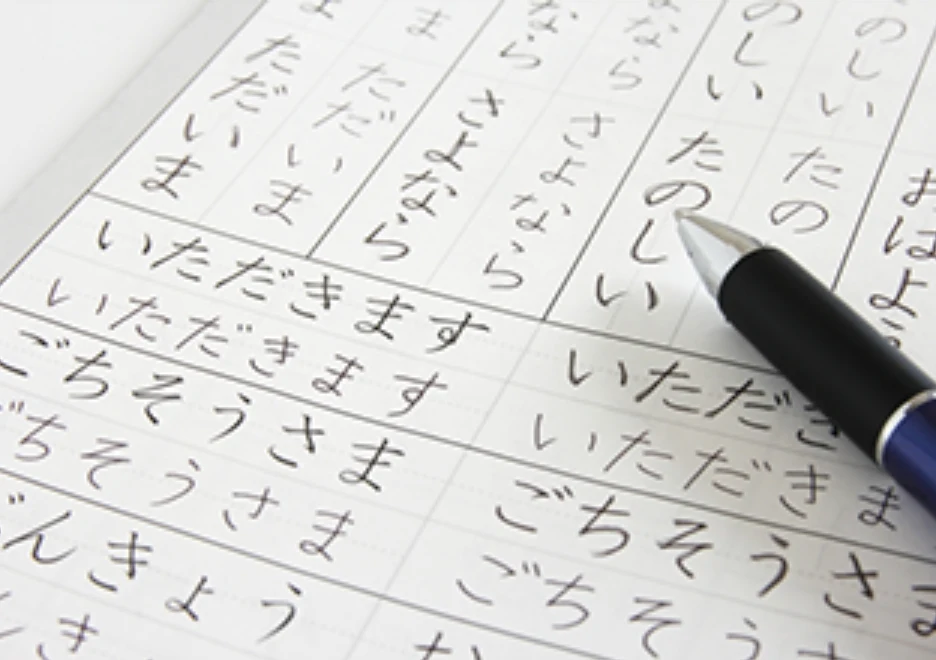 おはよ
のしい たの
のしい たのしい
なら さよなら
なら さよなら
ま ただいま
ま ただいま
いただきます いただき
いただきます いただきま
ごちそうさま ごちそうさま
ちそうさま ごちそう
んきょう
き